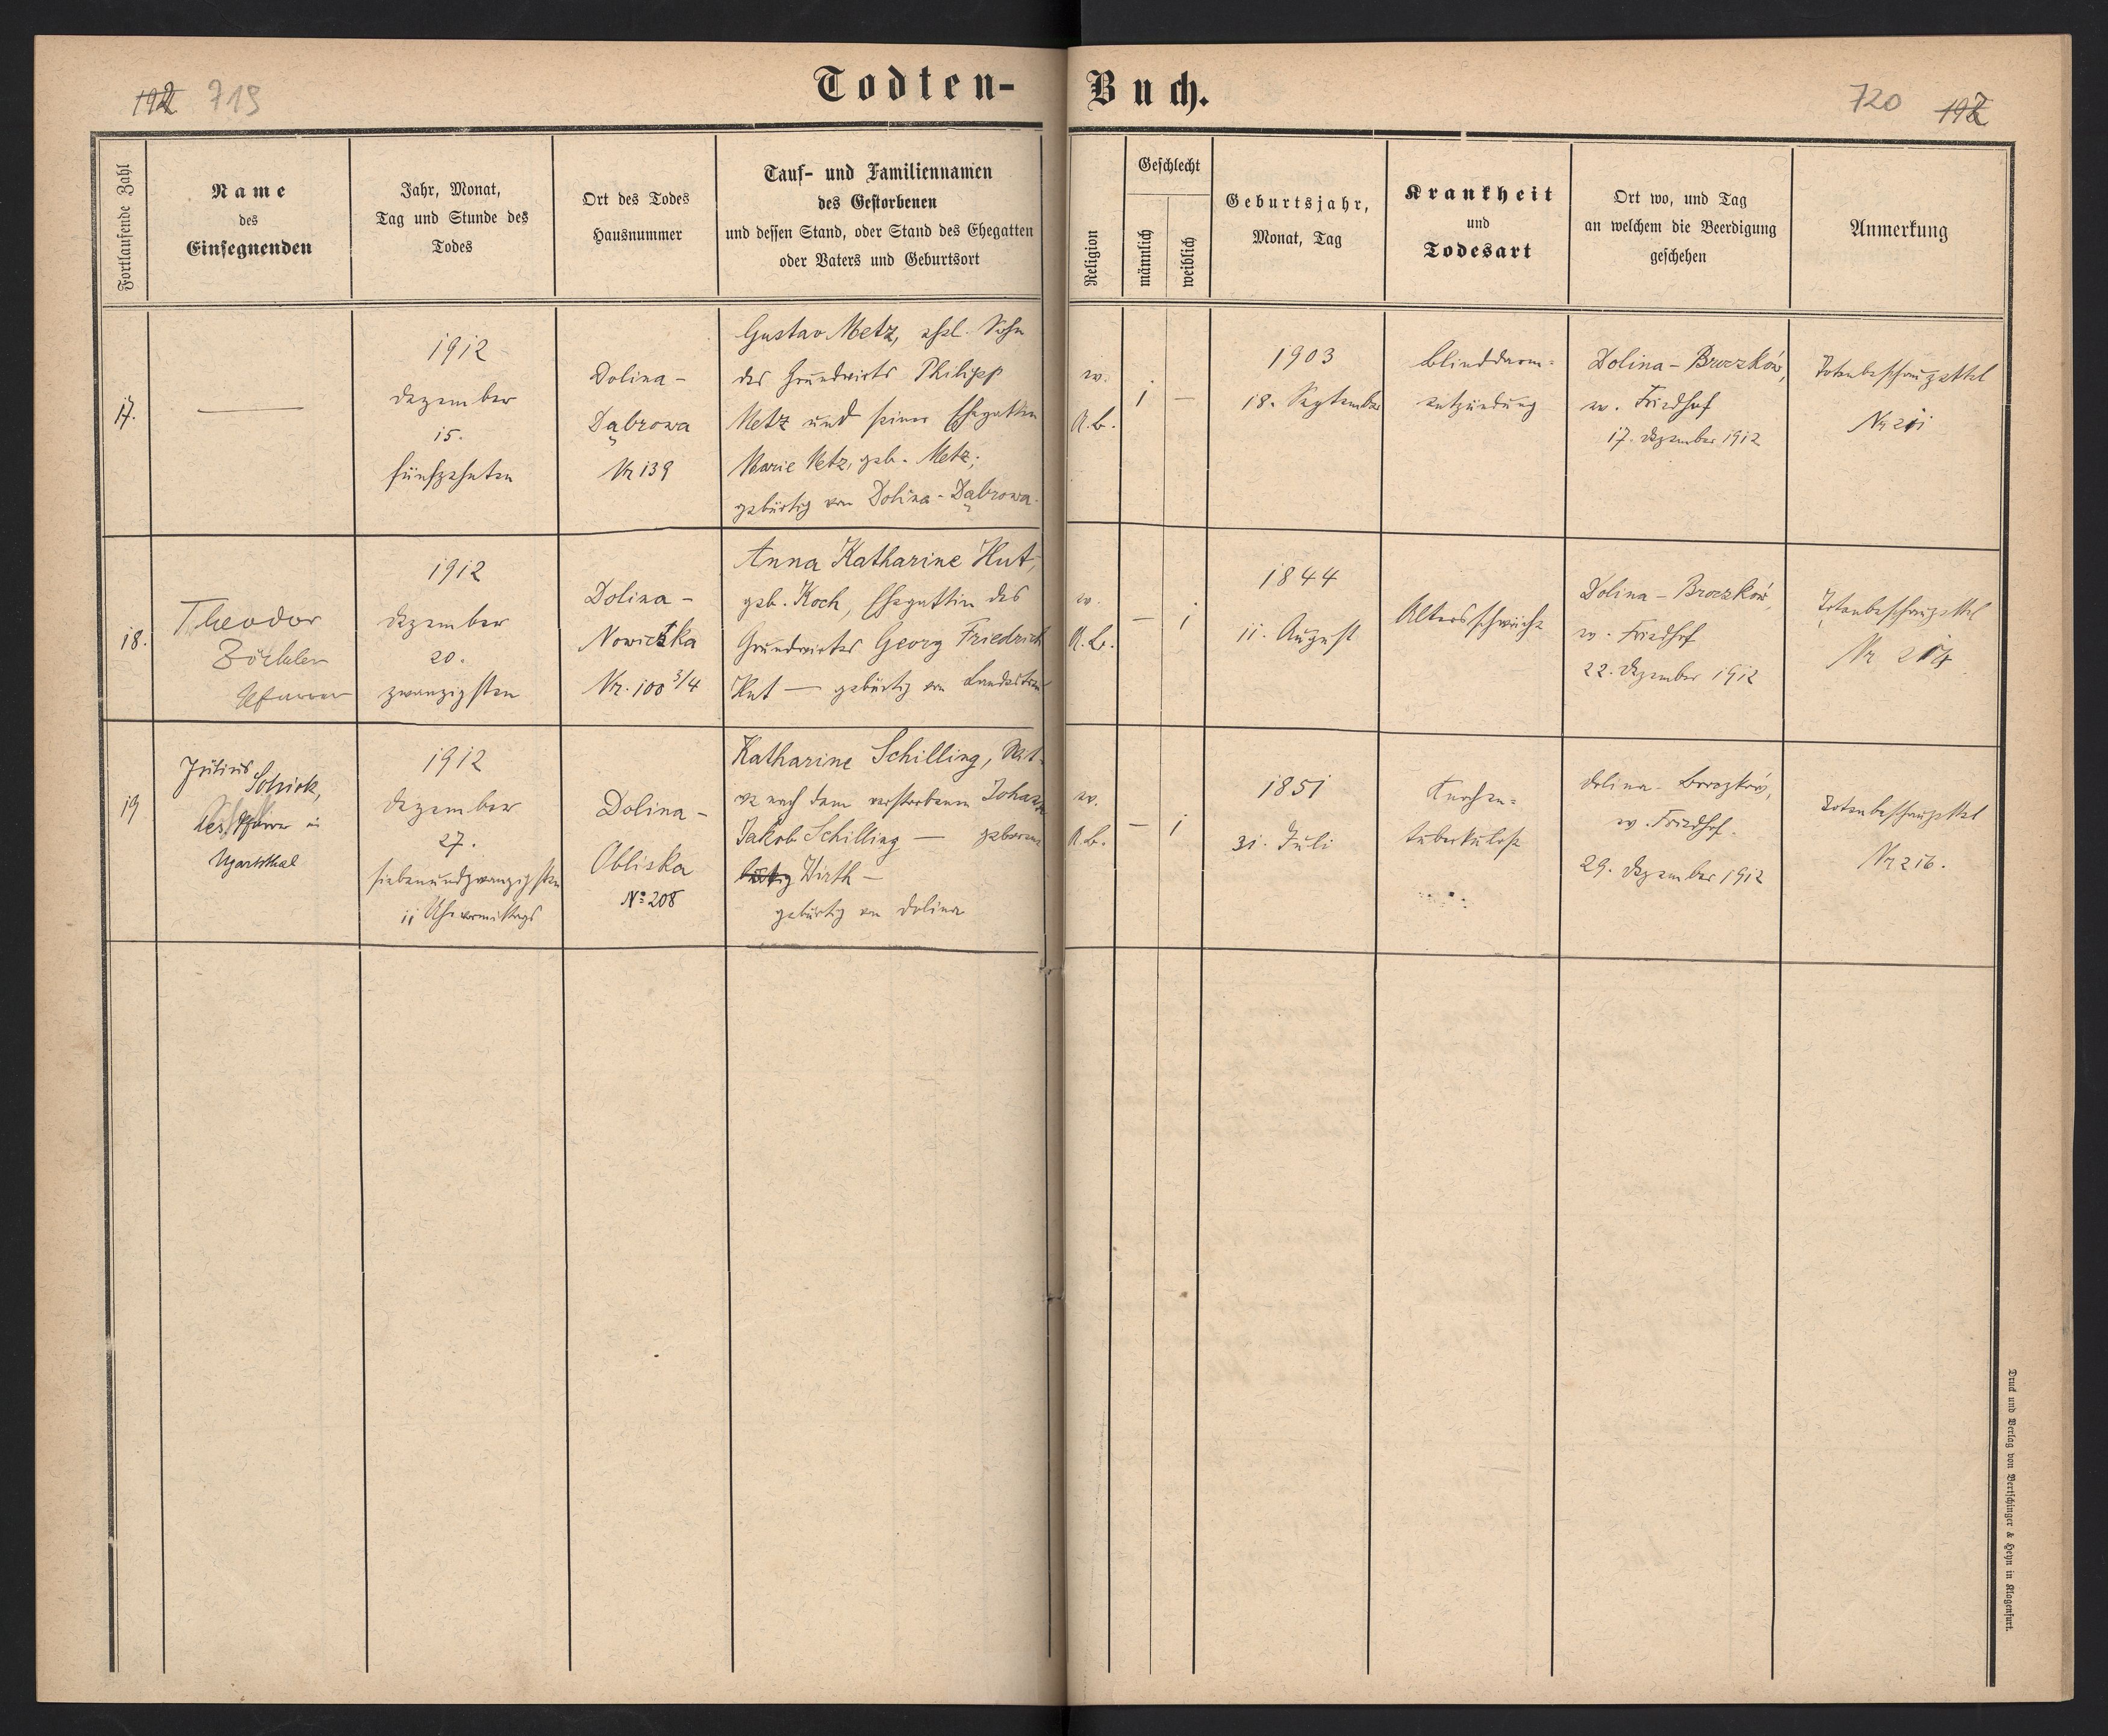 Todten-Buch.
719
720
Fortlaufende Zahl
Name
des
Einsegnenden
Jahr, Monat,
Tag und Stunde des
Todes
Ort des Todes
Hausnummer
Tauf- und Familiennamen
des Gestorbenen
und dessen Stand, oder Stand des Ehegatten
oder Vaters und Geburtsort
Religion
Geschlecht
männlich
weiblich
Geburtsjahr,
Monat, Tag
Krankheit
und
Todesart
Ort wo, und Tag
an welchem die Beerdigung
geschehen
Anmerkung
17.
—
1912
Dezember
15.
fünfzehnten
Dolina-
Dąbrowa
Nr 139
Gustav Metz, ehel. Sohn
des Grundwirts Philipp
Metz und seiner Ehegattin
Marie Metz, geb. Metz;
gebürtig von Dolina-Dąbrowa.
ev.
A.B.
1
—
1903
18. September
Blinddarm-
entzündung
Dolina-Broczków,
ev. Friedhof
17. Dezember 1912
Totenbeschauzettel
Nr 211
18.
Theodor
Zöckler
Pfarrer
1912
Dezember
20.
zwanzigsten
Dolina-
Nowiczka
Nr. 100 3/4
Anna Katharine Hut,
geb. Koch, Ehegattin des
Grundwirtes Georg Friedrich
Hut — gebürtig von
ev.
A.B.
—
1
1844
11. August
Altersschwäche
Dolina-Broczków,
ev. Friedhof
22. Dezember 1912
Totenbeschauzettel
Nr 214
19
Julius Schick,
Pfarrer in
Ugartsthal
1912
Dezember
27.
siebenundzwanzigsten
11 Uhr vormittags
Dolina-
Obliska
No 208
Katharine Schilling, Wit-
we nach dem verstorbenen Johann
Jakob Schilling — geborene
Wirth —
gebürtig von Dolina
ev.
A.B.
—
1
1851
31. Juli
Knochen-
tuberkulose
Dolina-Broczków,
ev. Friedhof.
29. Dezember 1912
Totenbeschauzettel
Nr 216.
Druck und Verlag von Bertschinger & Heyn in Klagenfurt.